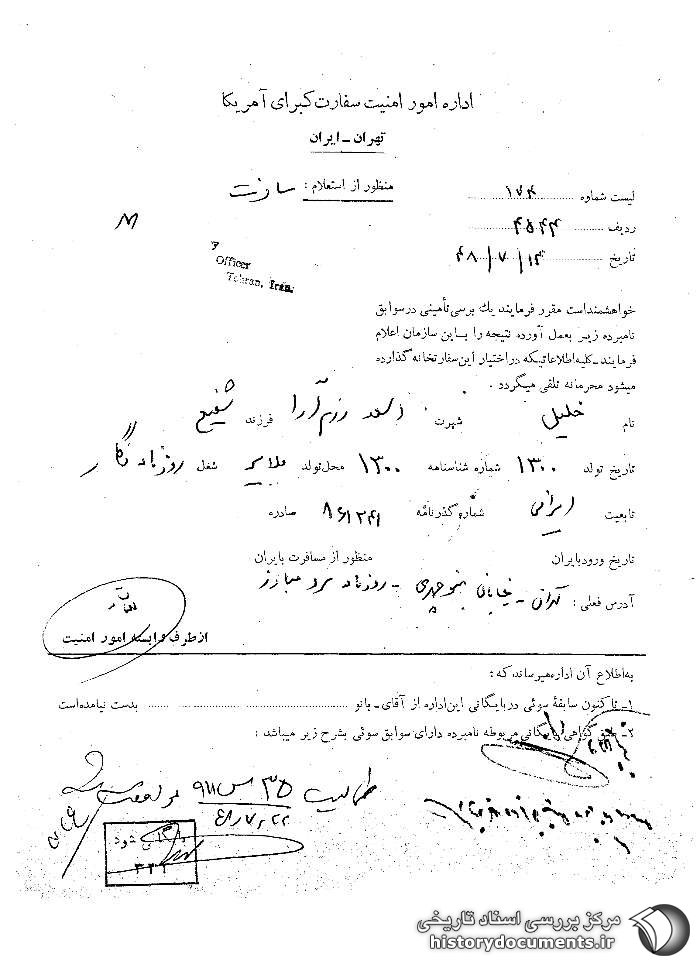 اداره امور امنیت سفارت کبرای آمریکا
تهران ـ ایران
لیست شماره ۱۷۴
منظور از استعلام :
ردیف ۴۵۴۴
تاریخ ۴۸/۷/۱۴
M
Officer
Tehran, Iran.
خواهشمند است مقرر فرمایند یك برسی تأمینی در سوابق
نامبرده زیر بعمل آورده نتیجه را باین سازمان اعلام
فرمایند ـ کلیه اطلاعاتیکه در اختیار این سفارتخانه گذارده
میشود محرمانه تلقی میگردد .
نام خلیل شهرت اسعد رزم آرا فرزند شفیع
تاریخ تولد ۱۳۰۰ شماره شناسنامه ۱۳۰۰ محل تولد ملایر شغل روزنامه نگار
تابعیت ایرانی شماره گذرنامه ۸۶۱۲۴۱ صادره
تاریخ ورود بایران منظور از مسافرت بایران
آدرس فعلی : تهران ـ خیابان منوچهری ـ روزنامه مرد مبارز
از طرف وابسته امور امنیت
به اطلاع آن اداره میرساند که :
۱ـ تا کنون سابقهٔ سوئی در بایگانی این اداره از آقای ـ بانو بدست نیامده است
۲ـ طبق گواهی بایگانی مربوطه نامبرده دارای سوابق سوئی بشرح زیر میباشد :
بایگانی شود
۳۳۲
مرکز بررسی اسناد تاریخی
historydocuments.ir